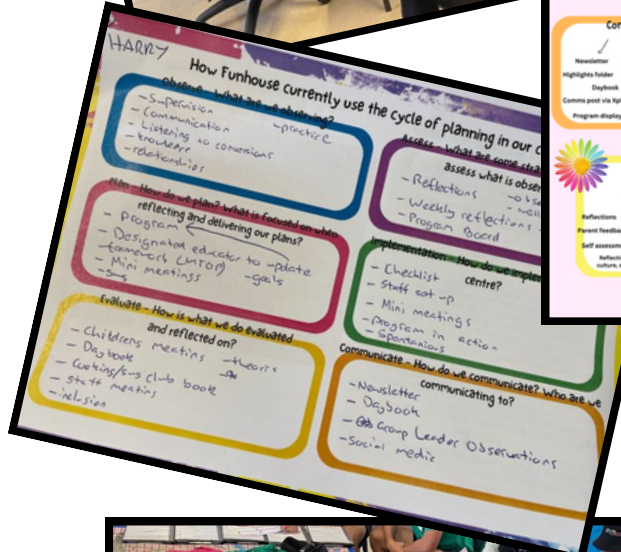 HARRY
How Funhouse currently use the cycle of planning in our c
Observe - What are we observing?
- Supervision
- Communication
- practice
- Listening to conversions
- knowledge
- relationships
Assess - What are some stra
assess what is obser
- Reflections
- obse
- Weekly reflections
- Program Board
Plan - How do we plan? What is focused on when
reflecting and delivering our plans?
- Program
- Designated educator to update
- framework (MTOP)
- goals
- Mini meetings
Implementation - How do we implem
centre?
- Checklist
- Staff set up
- Mini meetings
- program in action
- Spontanious
Evaluate - How is what we do evaluated
and reflected on?
- Childrens meetins
- theoris
- Daybook
- Cooking/sus club book
- staff meetins
- inclusion
Communicate - How do we communicate? Who are we
communicating to?
- Newsletter
- Daybook
- Group Leader Observations
- Social media
Con
Newsletter
Highlights folder
Daybook
Comms post via Xpl
Program display
Reflections
Parent feedba
Self assessm
Reflecti
culture,